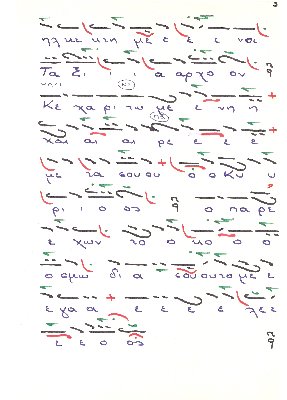 ηλ κε κτη με ε ε ε ναι
Τα ξι ι ι α αρχο ον
Κε χα ρι τω με ε νη η
χαι αι αι ρε ε ε ε
με τα σου ου ο ο Κυ υ
ρι ι ο ος ο πα ρε
ε χων το ο κο ο ο
ο σμω δι α σου ου το με ε
ε γα α ε ε ε ε λε ε
ε ε ο ος